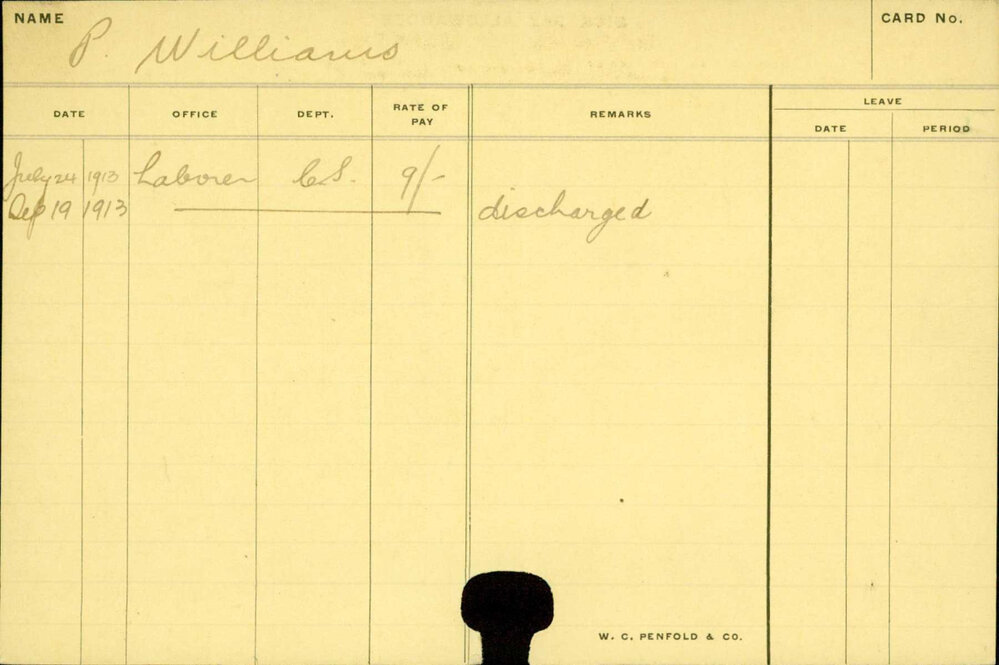 NAME P. Williams CARD No.
DATE OFFICE DEPT. RATE OF PAY REMARKS LEAVE
DATE PERIOD
July 24 1913 Laborer C.S. 9/-
Sep 19 1913 discharged
W. C. PENFOLD & CO.